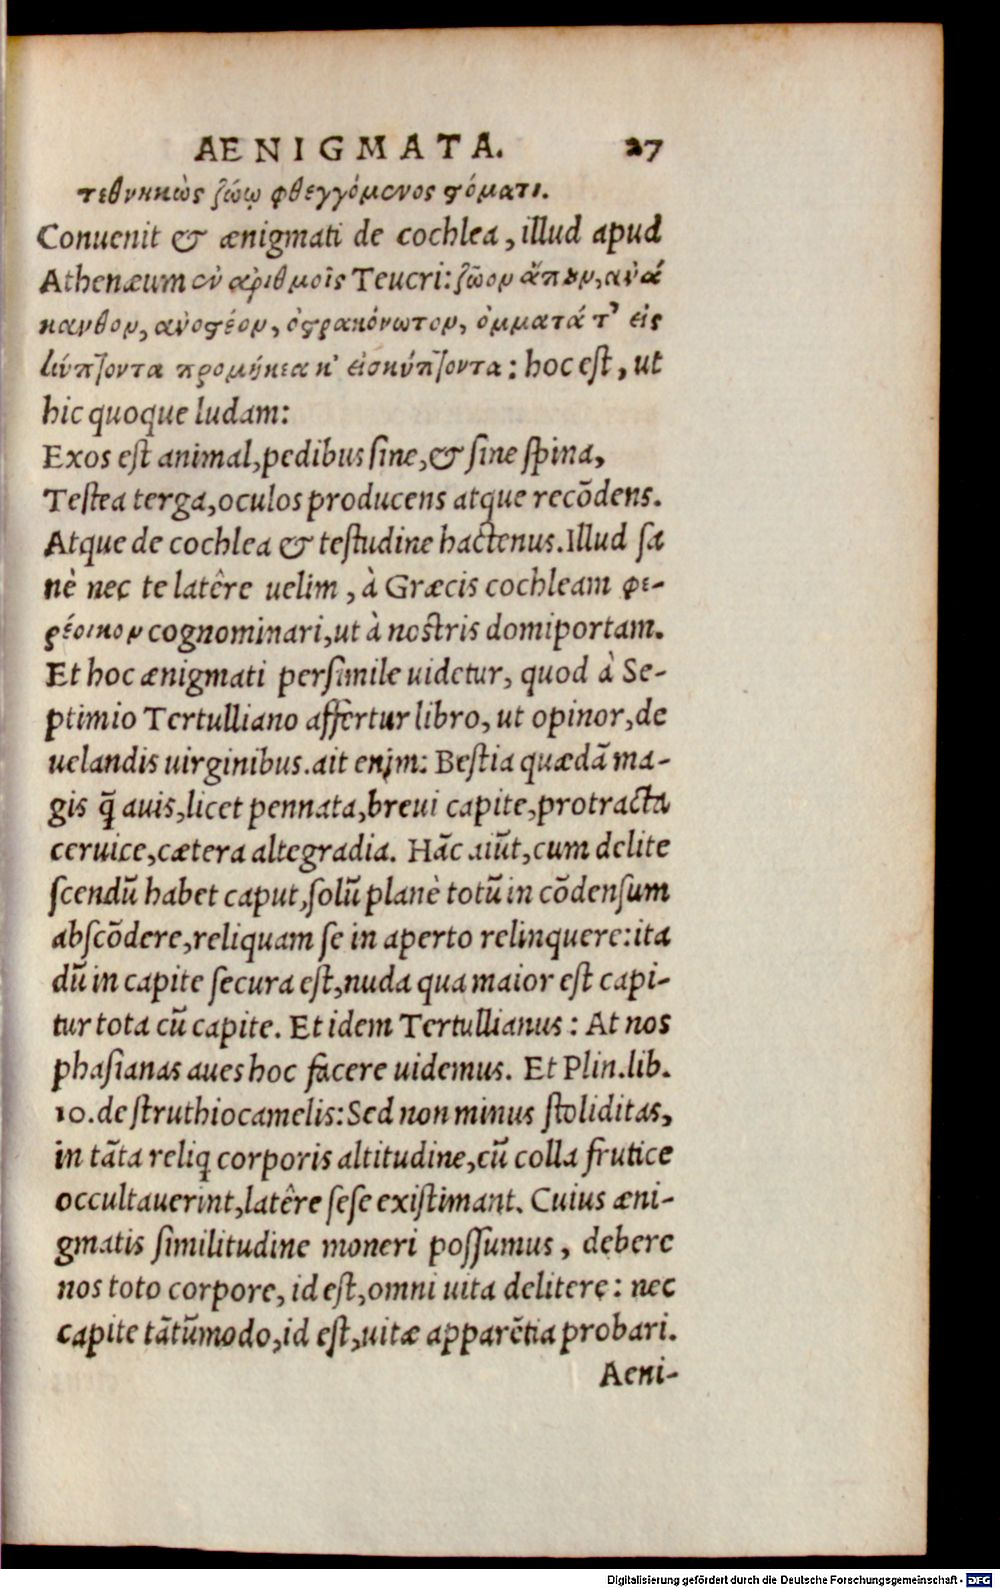 AENIGMATA. 27
τεθνηκὼς ζώῳ φθεγγόμενος στόματι.
Conuenit & ænigmati de cochlea, illud apud
Athenæum ἐν ἀριθμοῖς Teucri: ζῶον ἄπουν, ἀνά
κανθον, ἀνοστέον, ὀστρακόνωτον, ὄμματά τ' εἰς
κύπτοντα προμήκεα κ' εἰσκύπτοντα: hoc est, ut
hic quoque ludam:
Exos est animal, pedibus sine, & sine spina,
Testea terga, oculos producens atque recōdens.
Atque de cochlea & testudine hactenus. Illud sa
nè nec te latêre uelim, à Græcis cochleam φε-
ρέοικον cognominari, ut à nostris domiportam.
Et hoc ænigmati persimile uidetur, quod à Se-
ptimio Tertulliano affertur libro, ut opinor, de
uelandis uirginibus. ait enim: Bestia quædā ma-
gis q̃ auis, licet pennata, breui capite, protracta
ceruice, cætera altegradia. Hāc aiūt, cum delite
scendū habet caput, solū planè totū in cōdensum
abscōdere, reliquam se in aperto relinquere: ita
dū in capite secura est, nuda qua maior est capi-
tur tota cū capite. Et idem Tertullianus: At nos
phasianas aues hoc facere uidemus. Et Plin. lib.
10. de struthiocamelis: Sed non minus stoliditas,
in tāta reliq̃ corporis altitudine, cū colla frutice
occultauerint, latêre sese existimant. Cuius æni-
gmatis similitudine moneri possumus, debere
nos toto corpore, id est, omni uita delitere: nec
capite tātūmodo, id est, uitæ apparētia probari.
Aeni-
Digitalisierung gefördert durch die Deutsche Forschungsgemeinschaft - DFG